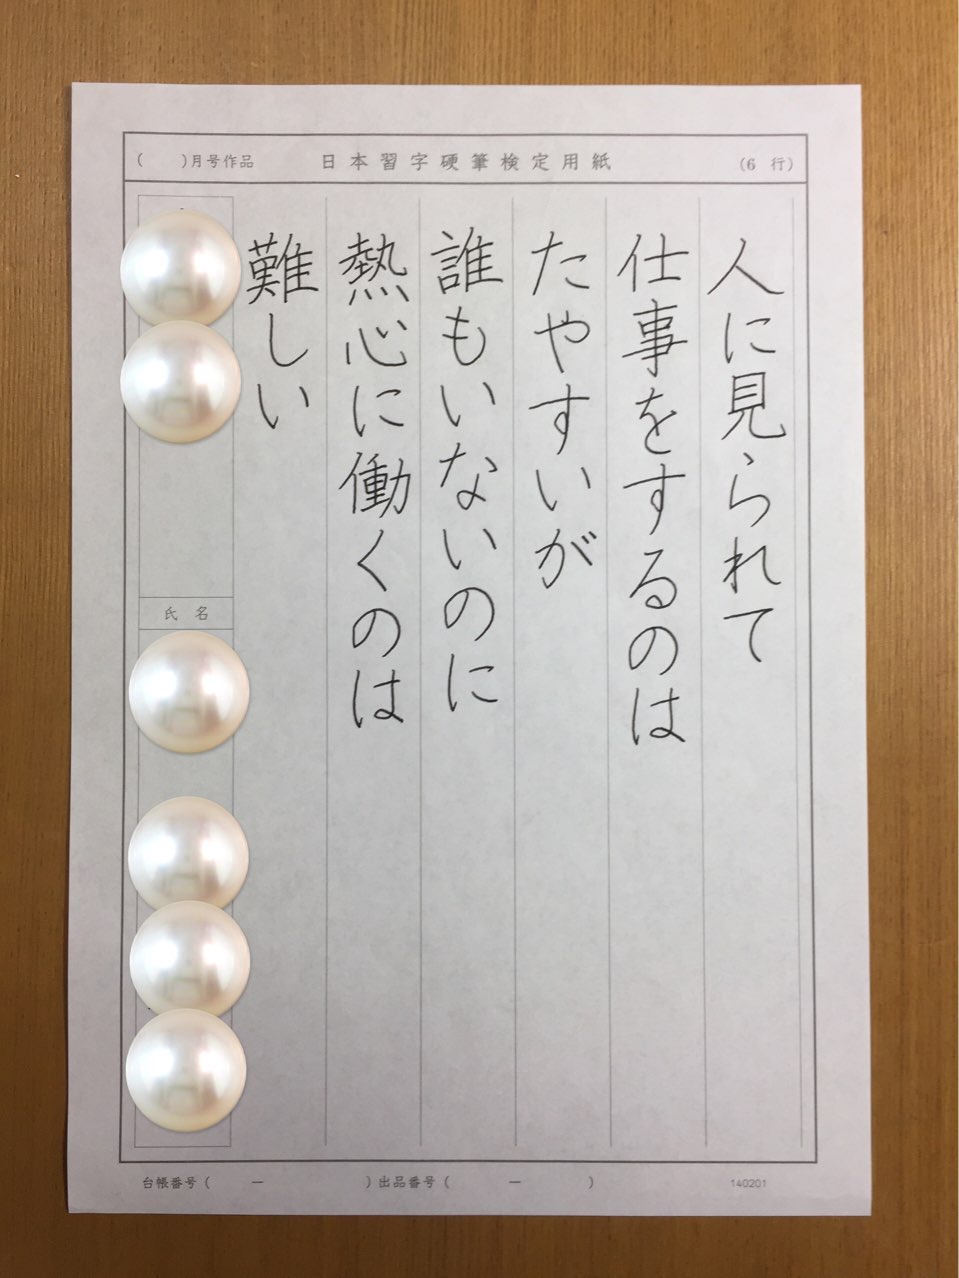 (　)月号作品
日本習字硬筆検定用紙
(6 行)
人に見られて
仕事をするのは
たやすいが
誰もいないのに
熱心に働くのは
難しい
氏名
台帳番号(　ー　)出品番号(　ー　)
140201